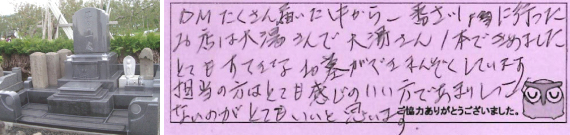 DMたくさん届いた中から一番さいしょに行った
お店は大湯さんで大湯さん1本できめました
とてもすてきなお墓ができまんぞくしています
担当の方はとても感じのいい方であまりしつこく
ないのがとてもいいと思います。
ご協力ありがとうございました。